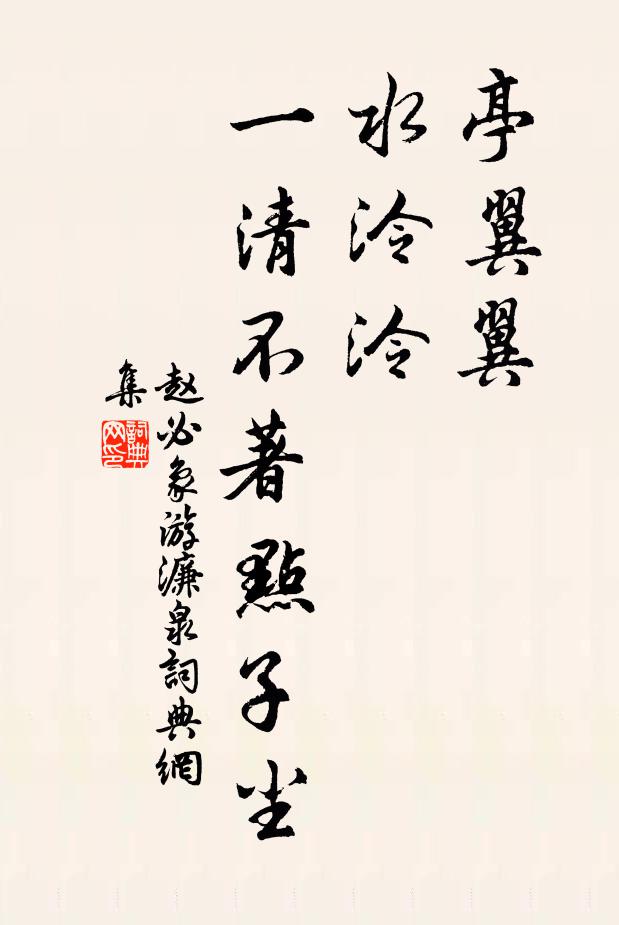 亭翼翼
水泠泠
一清不著點子尘
赵必象游濂泉詞典網
集
詞典
网印